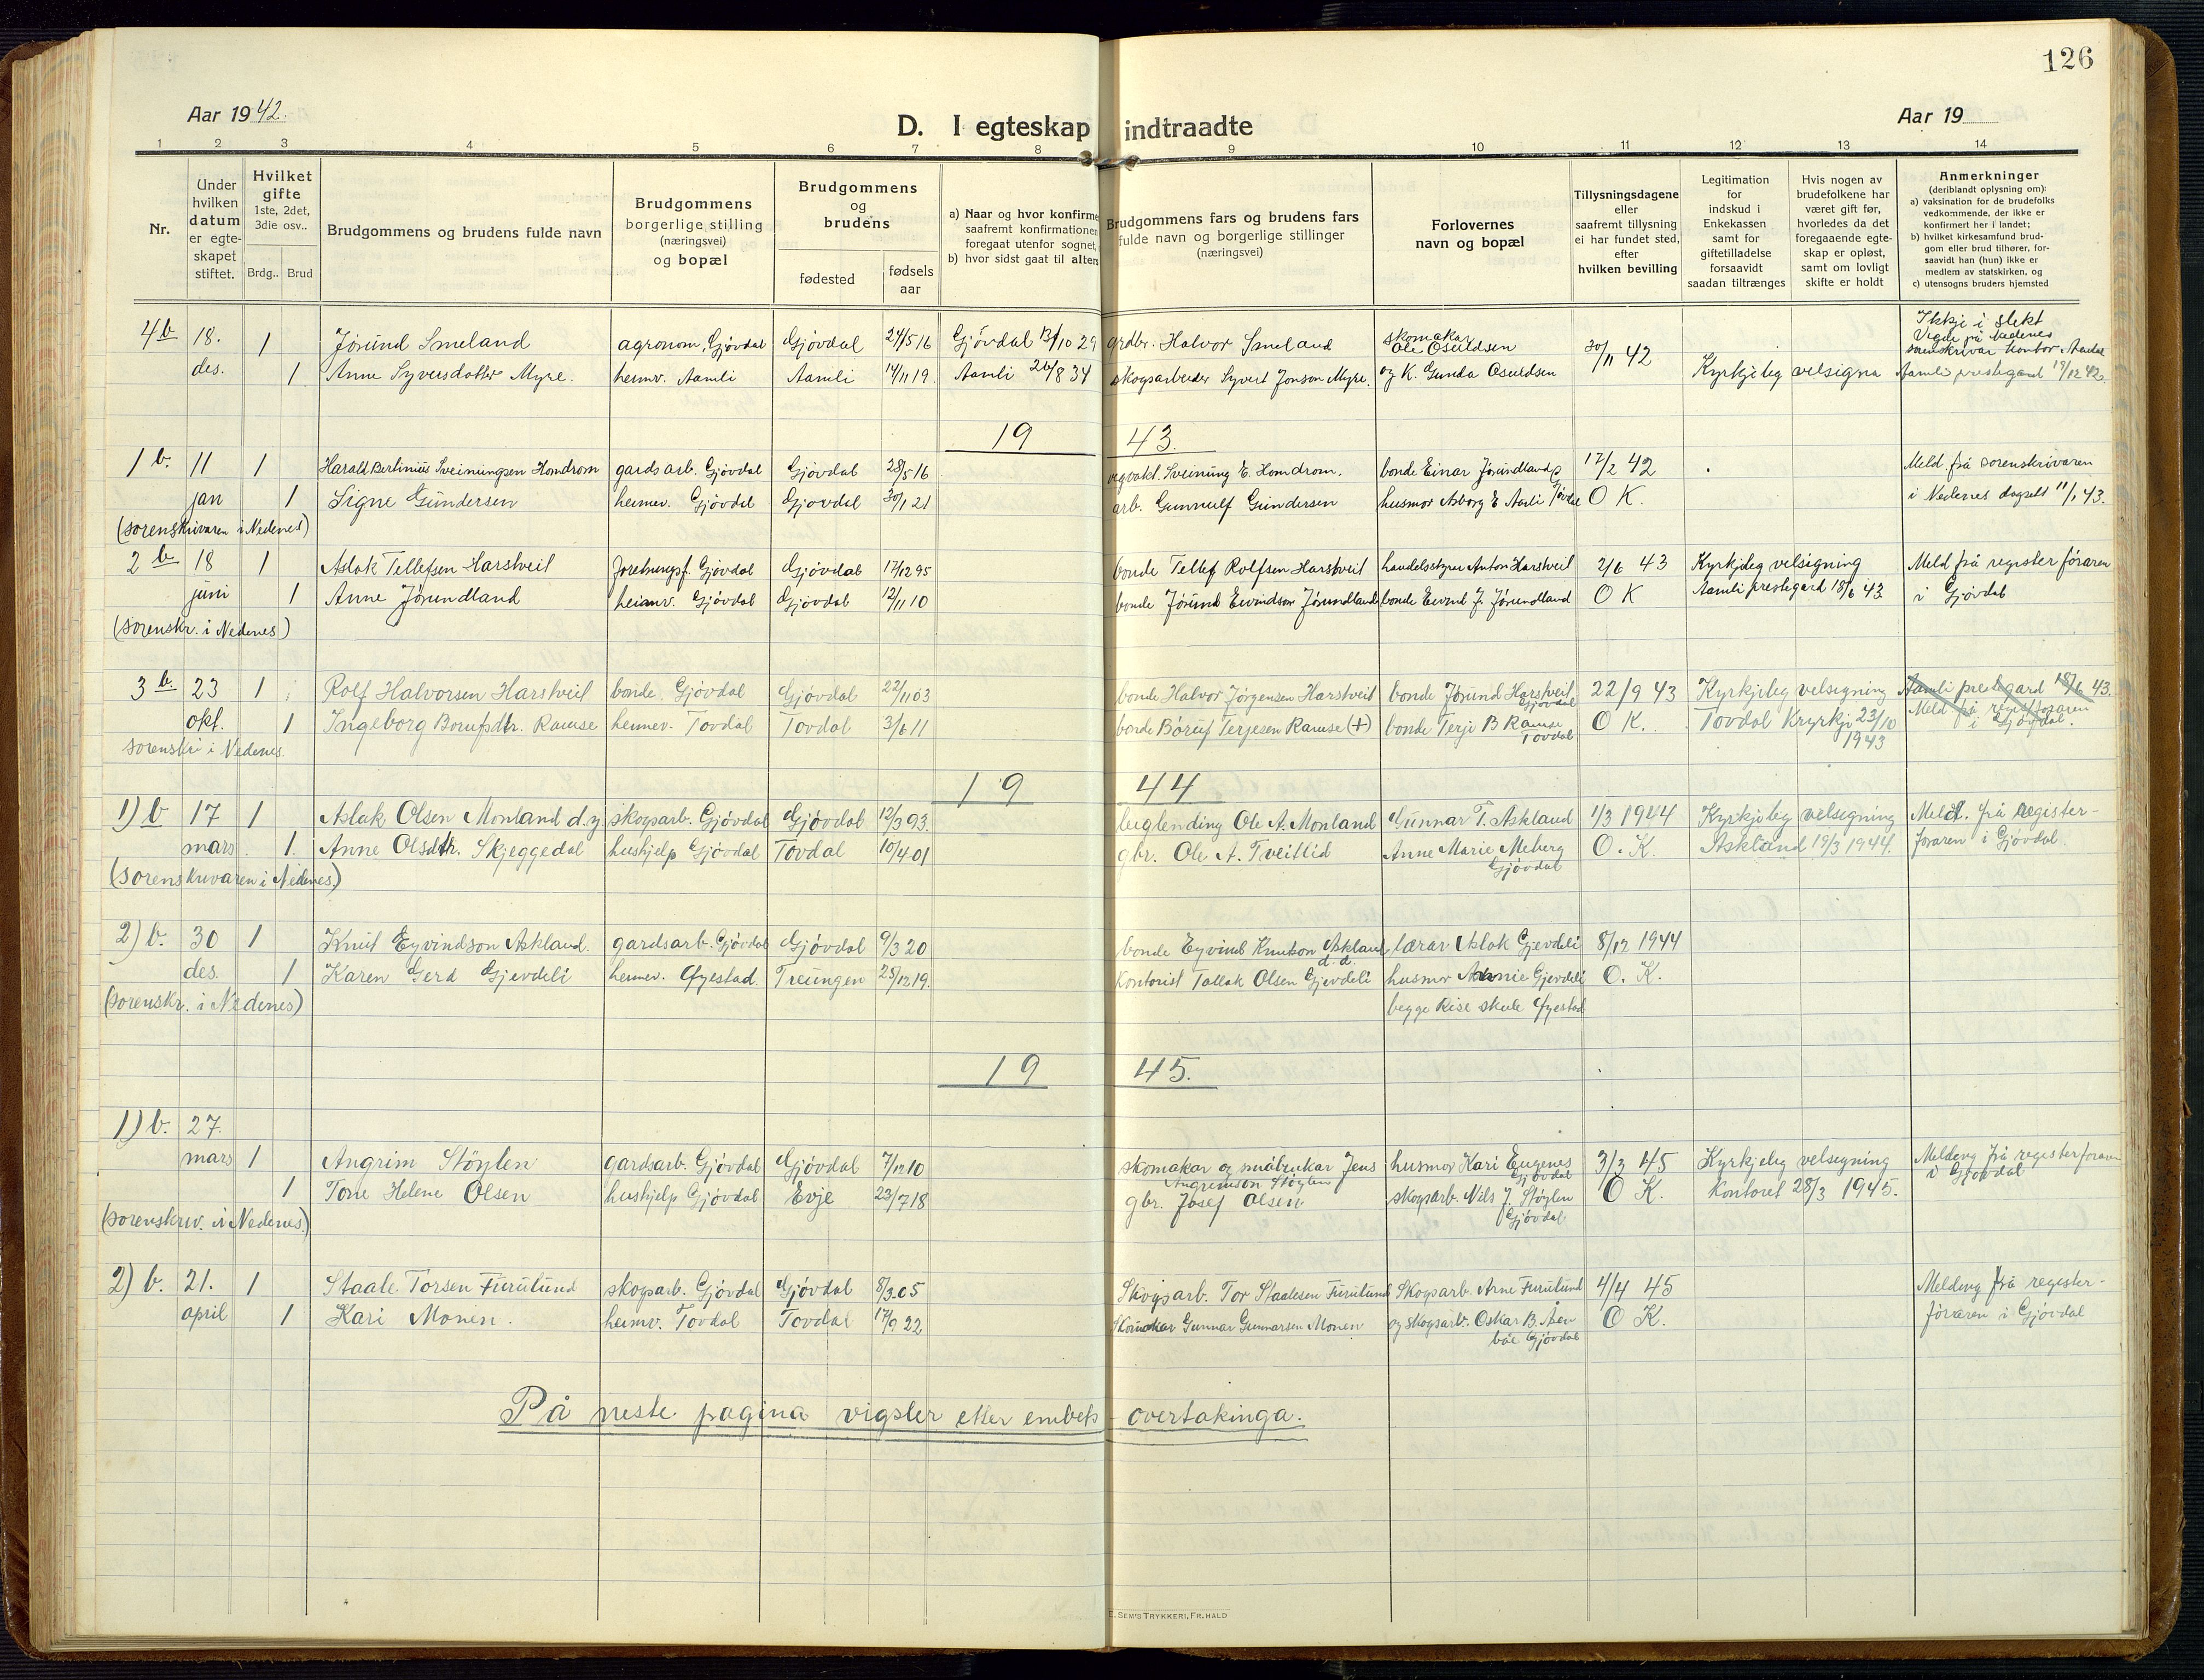 126
Aar 1942.
D. I egteskap indtraadte
Aar 19
1 2 3 4 5 6 7 8 9 10 11 12 13 14
Nr.
Under hvilken datum er egteskapet stiftet.
Hvilket gifte 1ste, 2det, 3die osv..
Brdg.. Brud
Brudgommens og brudens fulde navn
Brudgommens borgerlige stilling (næringsvei) og bopæl
Brudgommens og brudens
fødested
fødsels aar
a) Naar og hvor konfirme
saafremt konfirmationen
foregaat utenfor sognet,
b) hvor sidst gaat til alters
Brudgommens fars og brudens fars
fulde navn og borgerlige stillinger
(næringsvei)
Forlovernes
navn og bopæl
Tillysningsdagene
eller
saafremt tillysning
ei har fundet sted,
efter
hvilken bevilling
Legitimation
for
indskud i
Enkekassen
samt for
giftetilladelse
forsaavidt
saadan tiltrænges
Hvis nogen av
brudefolkene har
været gift før,
hvorledes da det
foregaaende egte-
skap er opløst,
samt om lovligt
skifte er holdt
Anmerkninger
(deriblandt oplysning om):
a) vaksination for de brudefolks
vedkommende, der ikke er
konfirmert her i landet;
b) hvilket kirkesamfund brud-
gom eller brud tilhører, for-
saavidt han (hun) ikke er
medlem av statskirken, og
c) utensogns bruders hjemsted
4b 18. 1 Jørund Smeland agronom, Gjøvdal Gjøvdal 24/5 16 Gjøvdal 13/10 29 grdbr. Halvor Smeland skomakar Ole Osuldsen 30/11 42 Ikkje i slekt
Vigde på Nedenes
sorenskrivar kontor. Arendal
des. 1 Anne Syversdotter Myre. heimv. Aamli Aamli 14/11 19. Aamli 26/8 34 skogsarbeider Syvert Jonson Myre. og K. Gunda Osuldsen Kyrkjeleg velsigna Aamli prestegard 19/12 42.
19 43.
1 b. 11 1 Harald Bertinius Sveinungsen Homdrom gardsarb. Gjøvdal Gjøvdal 28/5 16 vegvakt. Sveinung E. Homdrom. bonde Einar Jørundland 17/2 42 Meld. frå sorenskrivaren
jan 1 Signe Gundersen heimv. Gjøvdal Gjøvdal 30/1 21 arb. Gunnulf Gundersen husmor Asborg E Aamli O K. i Nedenes dagsett 11/1 43.
(sorenskrivaren i Nedenes)
2 b 18 1 Aslak Tellefsen Harstveit Gjøvdal Gjøvdal 17/12 95 bonde Tellef Rolfsen Harstveit handelsstyrer Anton Harstveit 2/6 43 Kyrkjeleg velsigning Meld frå register føraren
juni 1 Anne Jørundland heimv. Gjøvdal Gjøvdal 12/11 10 bonde Jørund Eivindson Jørundland bonde Eivind J. Jørundland O K Aamli prestegard 18/6 43 i Gjøvdal
(sorenskr. i Nedenes)
3 b. 23 1 Rolf Halvorsen Harstveit bonde. Gjøvdal Gjøvdal 22/11 03 bonde Halvor Jørgensen Harstveit bonde Jørund Harstveit Gjøvdal 22/9 43 Kyrkjeleg velsigning Aamli prestegard 18/6 43.
okt. 1 Ingeborg Borufsdtr. Ramse heimv. Tovdal Tovdal 3/6 11 bonde Børuf Terjesen Ramse (+) bonde Terje B Ramse Tovdal O K. Tovdal Kryrkje 23/10 1943 Meld frå regist.føraren i Gjøvdal.
sorenskr i Nedenes.
19 44
1) b 17 1 Aslak Olsen Monland d.y skogsarb. Gjøvdal Gjøvdal 12/3 93. leiglending Ole A. Monland Gunnar T. Askland 1/3 1944 Kyrkjeleg velsigning Meld. frå register-
mars. 1. Anne Olsdtr. Skjeggedal hushjelp Gjøvdal Tovdal 10/4 01 gbr. Ole A. Tveitlid Anne Marie Meberg Gjøvdal O. K. Askland 19/3 1944. føraren i Gjøvdal.
(sorenskrivaren i Nedenes.)
2) b. 30 1 Knut Eyvindson Askland. gardsarb. Gjøvdal Gjøvdal 9/3 20 bonde Eyvind Knutson Askland lærar Aslak Gjevdeli 8/12 1944
des. 1 Karen Gerd Gjevdeli heimv. Øyestad. Treungen 25/12 19. kontorist Tallak Olsen Gjevdeli husmor Annie Gjevdeli O. K.
(sorenskr. i Nedenes) begge Rise skule Øyestad
19 45.
1) b. 27.
mars 1 Angrim Støylen gardsarb. Gjøvdal Gjøvdal 7/12 10 skomakar og småbrukar Jens Angrimson Støylen husmor Kari Eugenes Gjøvdal 3/3 45 Kyrkjeleg velsigning Melding frå registerføraren i Gjøvdal
1 Tone Helene Olsen hushjelp Gjøvdal Evje 23/7 18 gbr. Josef Olsen skogsarb. Nils J. Støylen Gjøvdal O K. Kontoret 28/3 1945.
(sorenskriv. i Nedenes.)
2) b. 21. 1 Staale Torsen Furulund skogsarb. Gjøvdal Gjøvdal 8/3 05 Skogsarb. Tor Staalesen Furulund Skogsarb. Arne Furulund 4/4 45 Melding frå register-
april 1 Kari Monen. heimv. Tovdal Tovdal 17/9 22 Skomakar Gunnar Gunnarsen Monen og skogsarb. Oskar B. Åen båe Gjøvdal O K. føraren i Gjøvdal
På neste pagina vigsler etter embets-overtakinga.
E. SEM'S TRYKKERI, FR.HALD